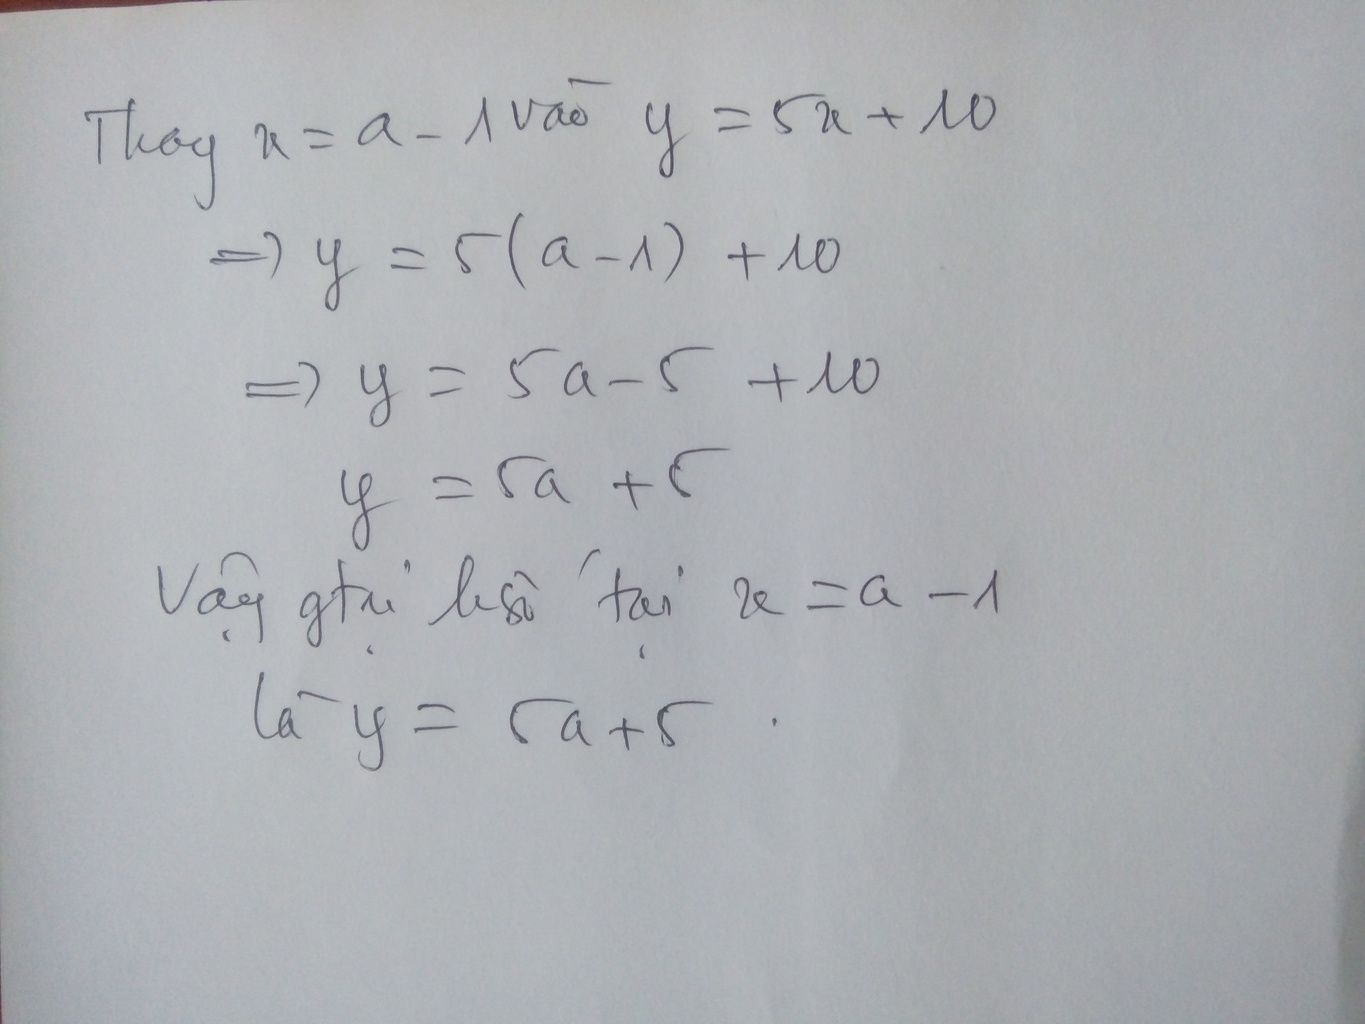 Thay x = a - 1 vào y = 5x + 10
=> y = 5(a - 1) + 10
=> y = 5a - 5 + 10
y = 5a + 5
Vậy gtrị hsố tại x = a - 1
là y = 5a + 5 .